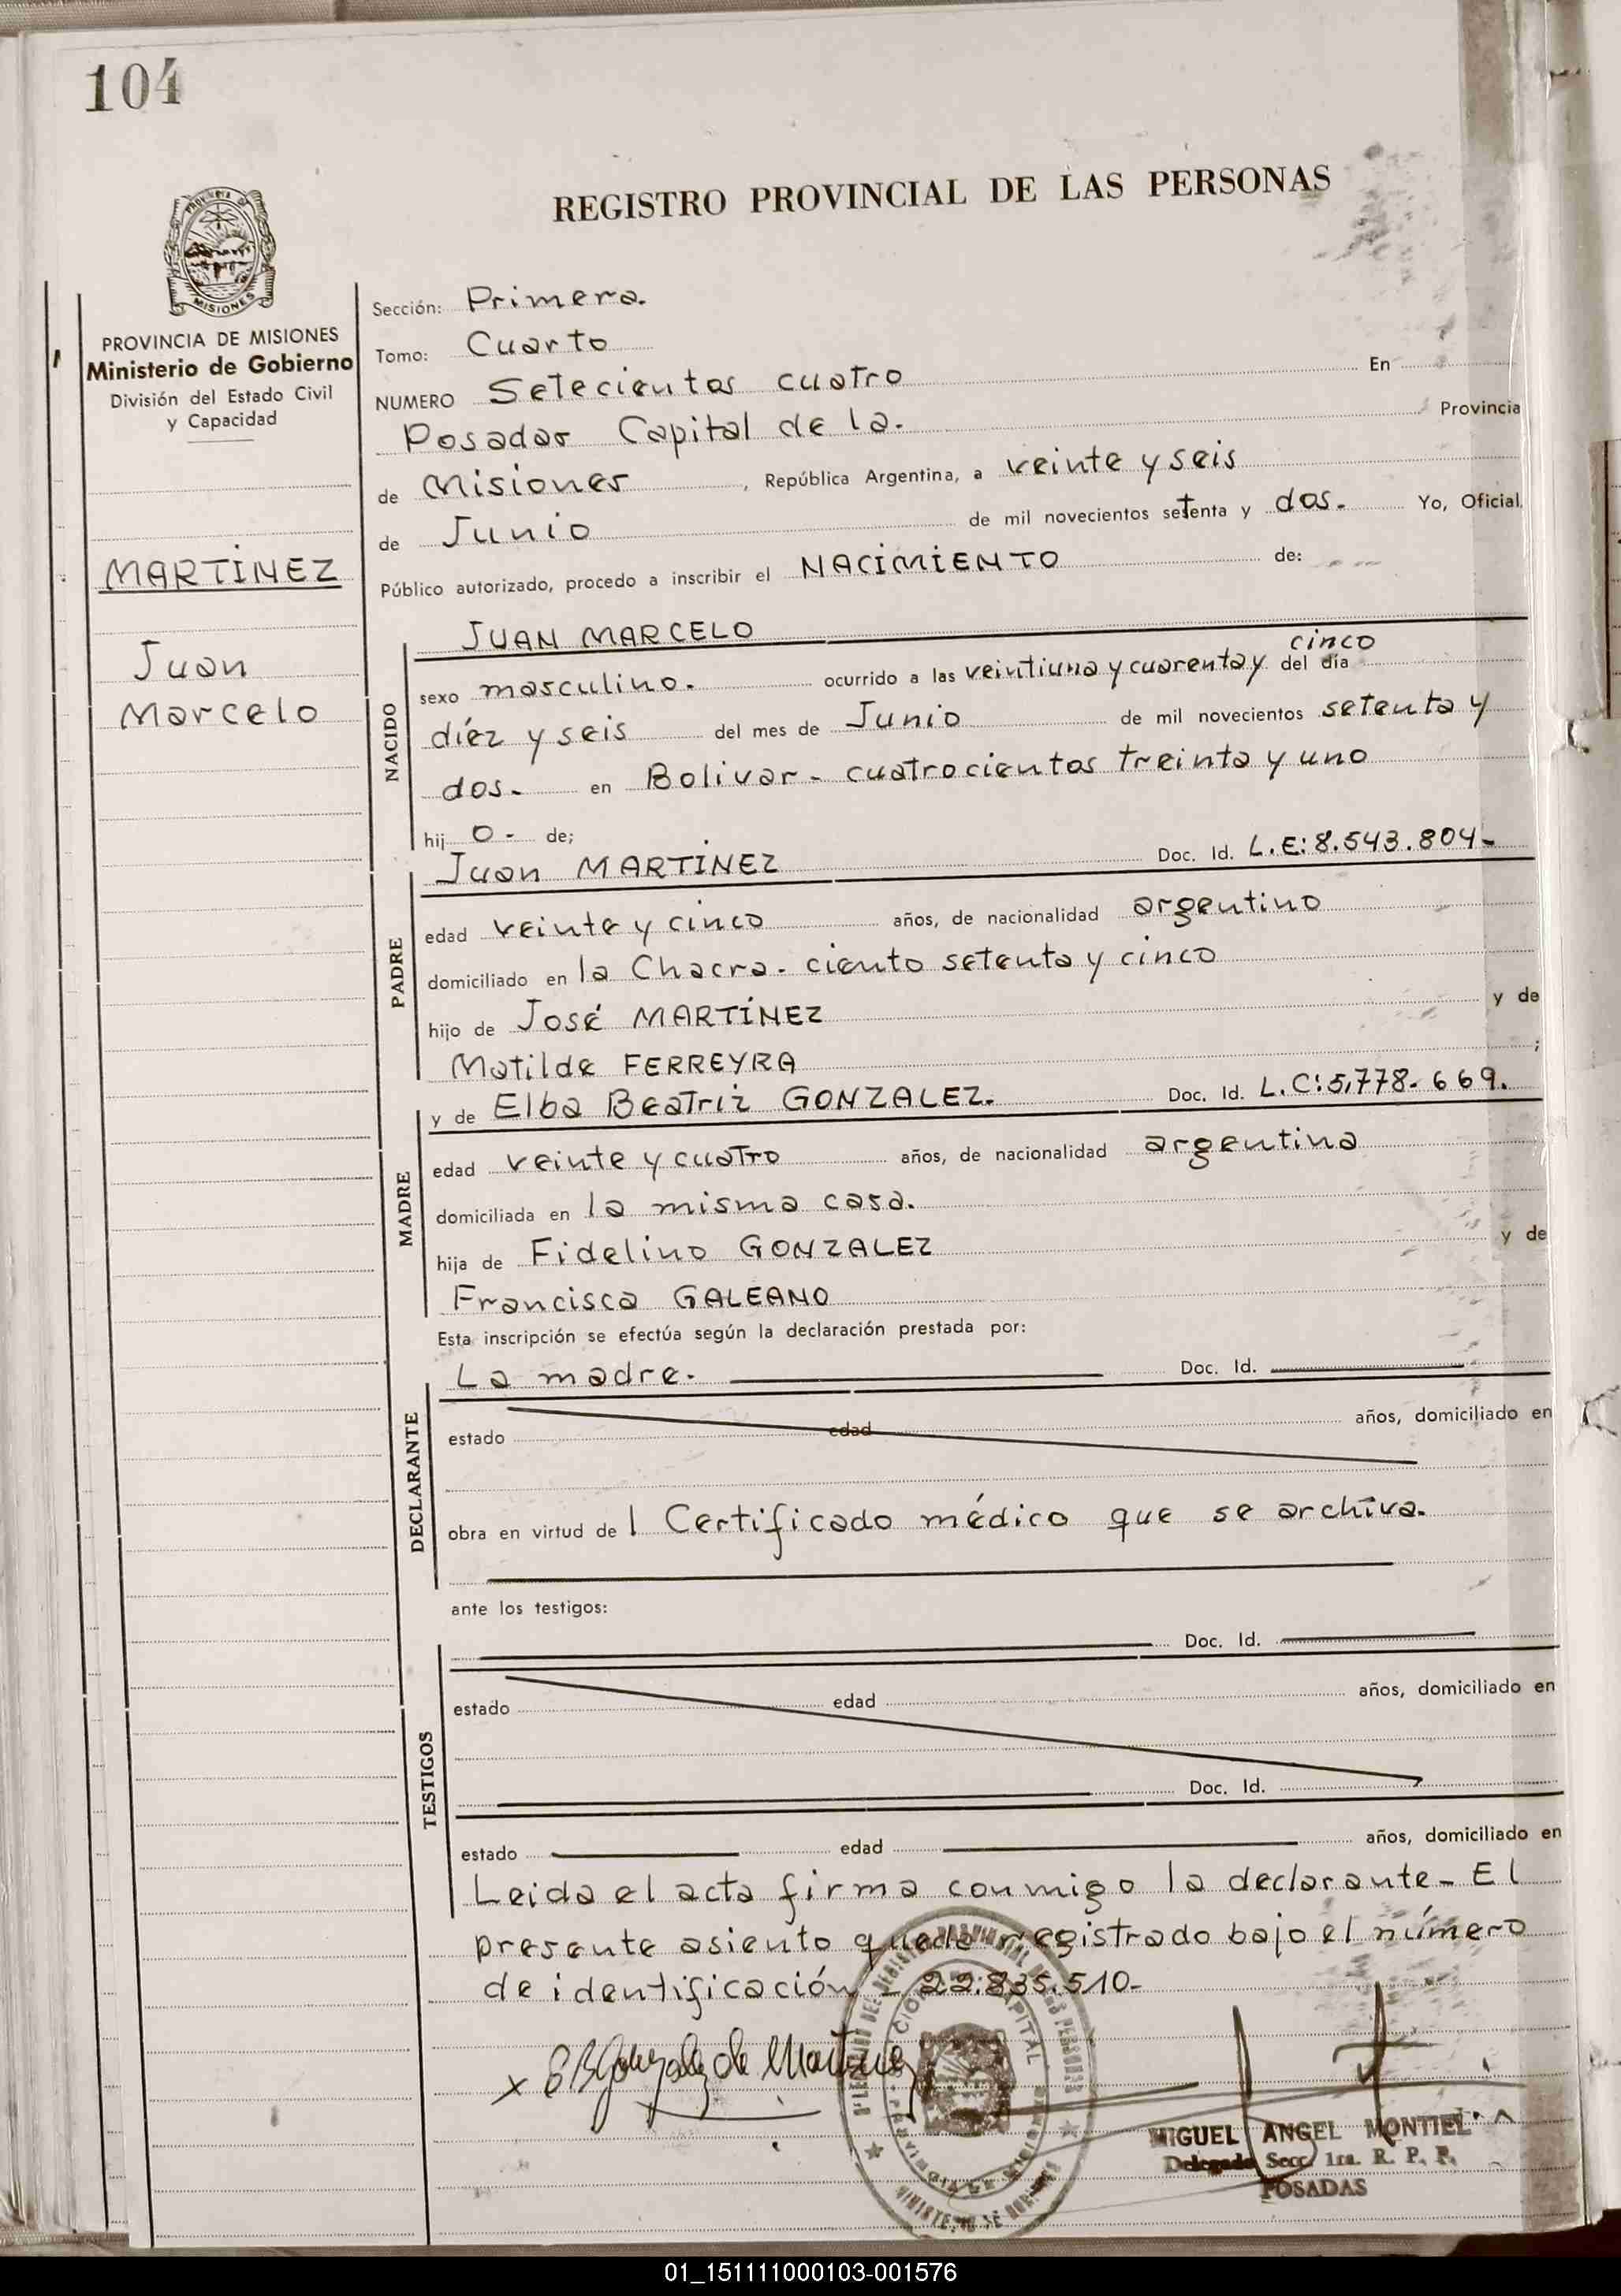 104
REGISTRO PROVINCIAL DE LAS PERSONAS
MISIONES
PROVINCIA DE MISIONES
Ministerio de Gobierno
División del Estado Civil
y Capacidad
MARTINEZ
Juan
Marcelo
Sección: Primera.
Tomo: Cuarto
NUMERO Setecientos cuatro En
Posadas Capital de la. Provincia
de Misiones, República Argentina, a veinte y seis
de Junio de mil novecientos setenta y dos. Yo, Oficial
Público autorizado, procedo a inscribir el NACIMIENTO de:
NACIDO
JUAN MARCELO
cinco
sexo masculino. ocurrido a las veintiuna y cuarenta y del día
díez y seis del mes de Junio de mil novecientos setenta y
dos. en Bolivar - cuatrocientos treinta y uno
hij o - de;
PADRE
Juan MARTINEZ Doc. Id. L.E: 8.543.804-
edad veinte y cinco años, de nacionalidad argentino
domiciliado en la Chacra - ciento setenta y cinco
hijo de José MARTINEZ y de
Matilde FERREYRA ;
MADRE
y de Elba Beatriz GONZALEZ. Doc. Id. L.C: 5,778.669.
edad veinte y cuatro años, de nacionalidad argentina
domiciliada en la misma casa.
hija de Fidelino GONZALEZ y de
Francisca GALEANO
Esta inscripción se efectúa según la declaración prestada por:
DECLARANTE
La madre. Doc. Id.
estado edad años, domiciliado en
obra en virtud de l Certificado médico que se archiva.
ante los testigos:
TESTIGOS
Doc. Id.
estado edad años, domiciliado en
Doc. Id.
estado edad años, domiciliado en
Leida el acta firma conmigo la declarante - El
presente asiento queda registrado bajo el número
de identificación - 22.835.510-
x E B Gonzalez de Martinez
CAPITAL
MIGUEL ANGEL MONTIEL
Delegado Secc. 1ra. R. P. P.
POSADAS
01_151111000103-001576